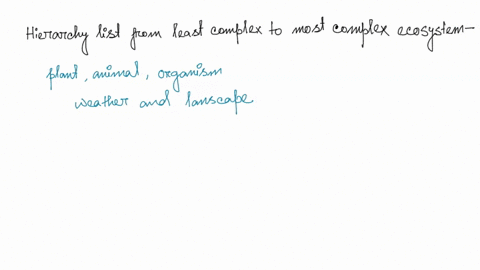 Hierarchy list from least complex to most complex ecosystem-
plant, animal, organism
weather and lanscape